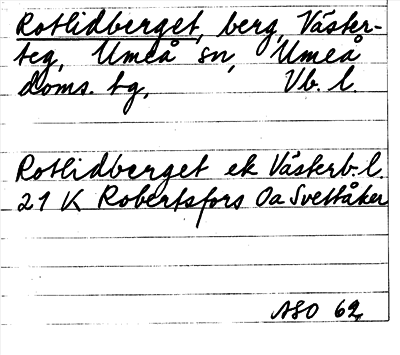 Rotlidberget, berg, Väster-
teg, Umeå sn, Umeå
doms. tg, Vb. l.
Rotlidberget ek Västerb. l.
21 K Robertsfors Oa Svettåker
ASO 62.